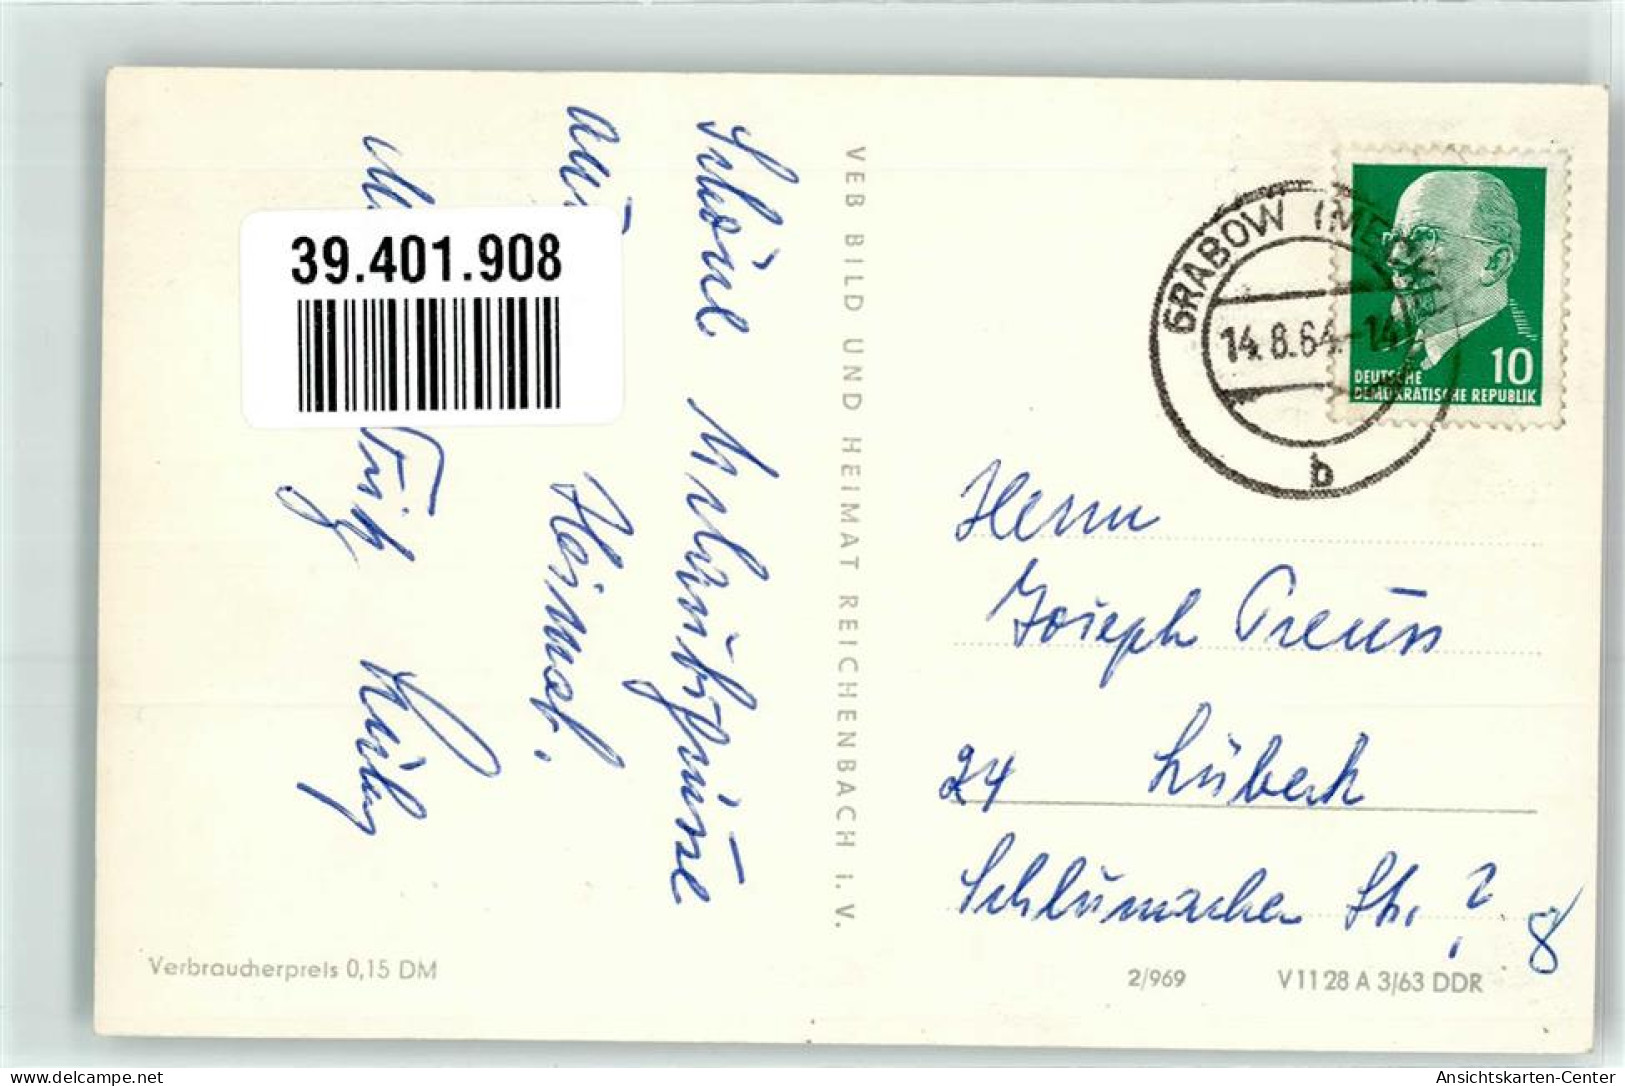 Schöne Urlaubsgrüße
aus
Heimat.
39.401.908
VEB BILD UND HEIMAT REICHENBACH i. V.
GRABOW (MECKL)
14.8.64-14
b
10
DEUTSCHE
DEMOKRATISCHE REPUBLIK
Herrn
Joseph Preuss
24 Lübeck
Schlumacher Str. ?
8
Verbraucherpreis 0,15 DM
2/969
V 11 28 A 3/63 DDR
https://www.delcampe.net
Ansichtskarten-Center